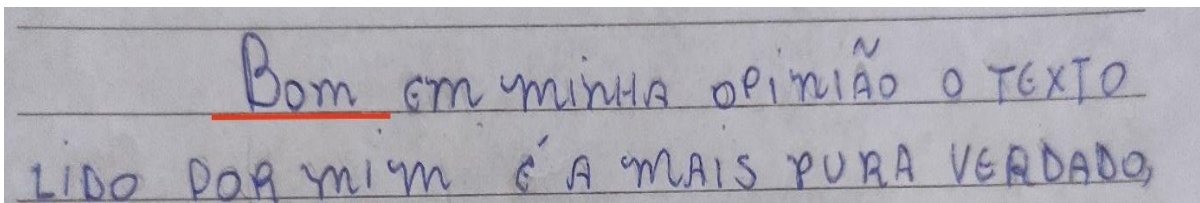 Bom em minha opinião o TEXTO
LIDO POR mim É A MAIS PURA VERDADO,